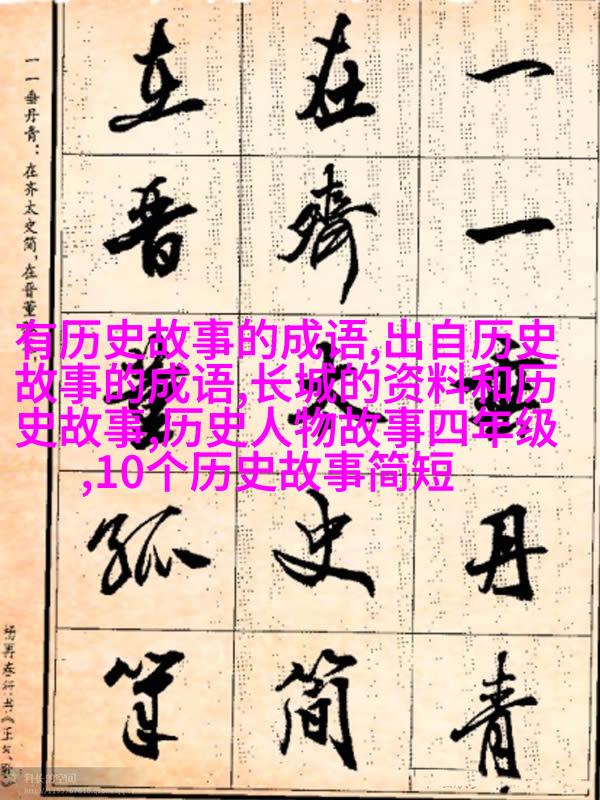 一一垂丹青
在齊太史简
在晋董狐笔
一一垂丹青：在齐太史简，在晋董
杨再春行书《正气歌
有历史故事的成语,出自历史
故事的成语,长城的资料和历
史故事,历史人物故事四年级
,10个历史故事简短
科长的空间